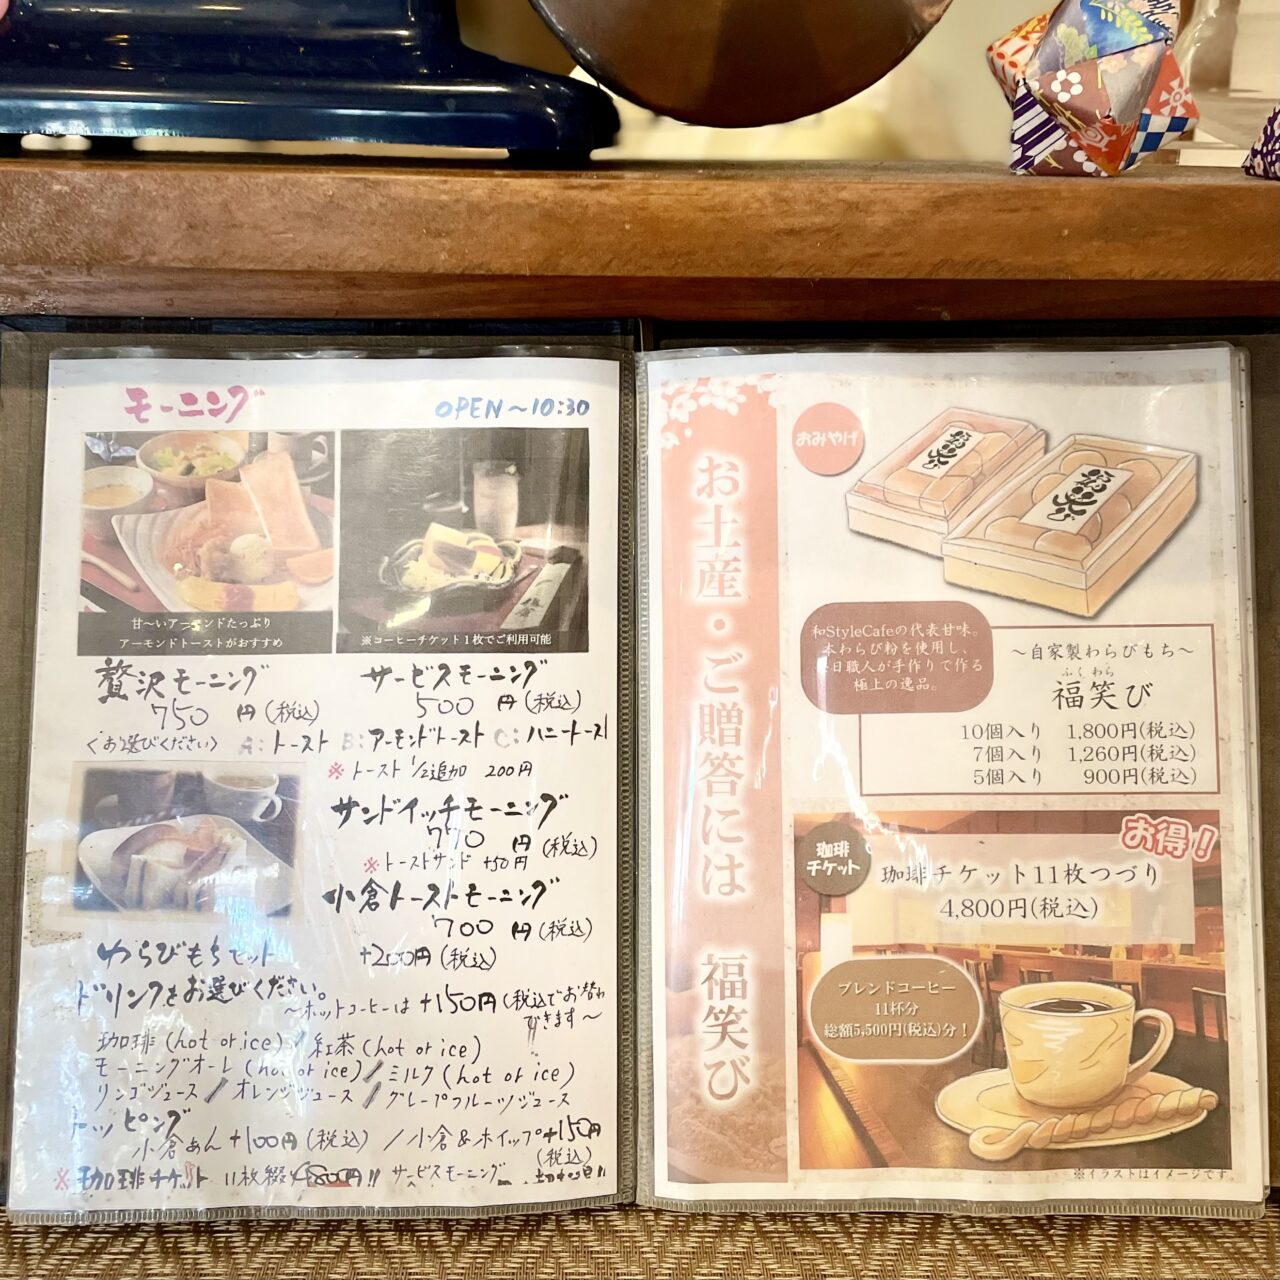 モーニング
OPEN～10:30
甘～いアーモンドたっぷり
アーモンドトーストがおすすめ
※コーヒーチケット1枚でご利用可能
贅沢モーニング
750円(税込)
サービスモーニング
500円(税込)
〈お選びください〉 A:トースト B:アーモンドトースト C:ハニートースト
※トースト1/2追加 200円
サンドイッチモーニング
770円(税込)
※トーストサンド +50円
小倉トーストモーニング
700円(税込)
わらびもちセット +200円(税込)
ドリンクをお選びください。
～ホットコーヒーは+150円(税込でお替わ
できます～
珈琲(hot or ice)/紅茶(hot or ice)
モーニングオーレ(hot or ice)/ミルク(hot or ice)
リンゴジュース/オレンジジュース/グレープフルーツジュース
トッピング
小倉あん+100円(税込)/小倉&ホイップ+150円
(税込)
※珈琲チケット 11枚綴り4800円!! サービスモーニング
お土産・ご贈答には 福笑び
おみやげ
福笑び
福笑び
和StyleCafeの代表甘味。
本わらび粉を使用し、
日職人が手作りで作る
極上の逸品。
～自家製わらびもち～
ふくわら
福笑び
10個入り 1,800円(税込)
7個入り 1,260円(税込)
5個入り 900円(税込)
お得!
珈琲
チケット
珈琲チケット11枚つづり
4,800円(税込)
ブレンドコーヒー
11杯分
総額5,500円(税込)分!
※イラストはイメージです